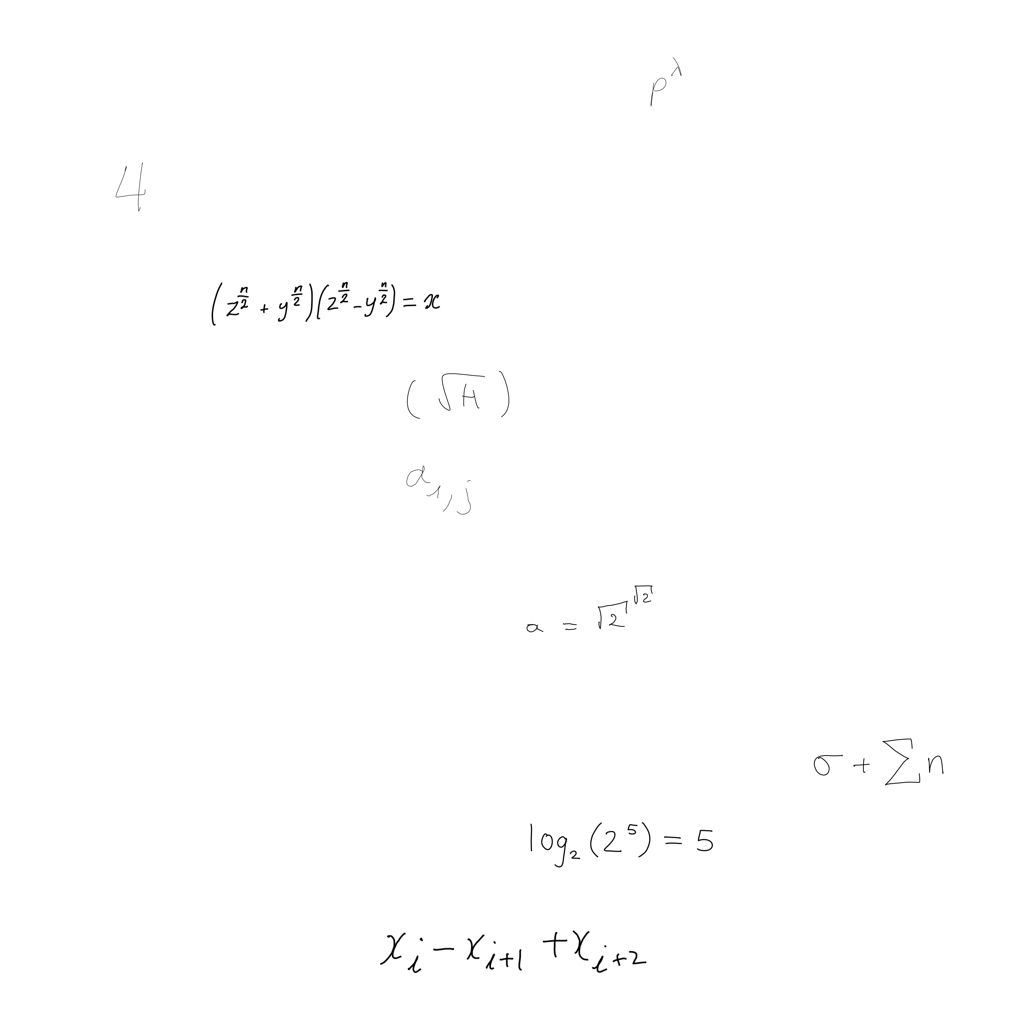 p^λ
4
(z^{n/2} + y^{n/2})(z^{n/2} - y^{n/2}) = x
(√H)
a_{i,j}
a = √2^{√2}
σ + ∑n
log_2(2^5) = 5
x_i - x_{i+1} + x_{i+2}